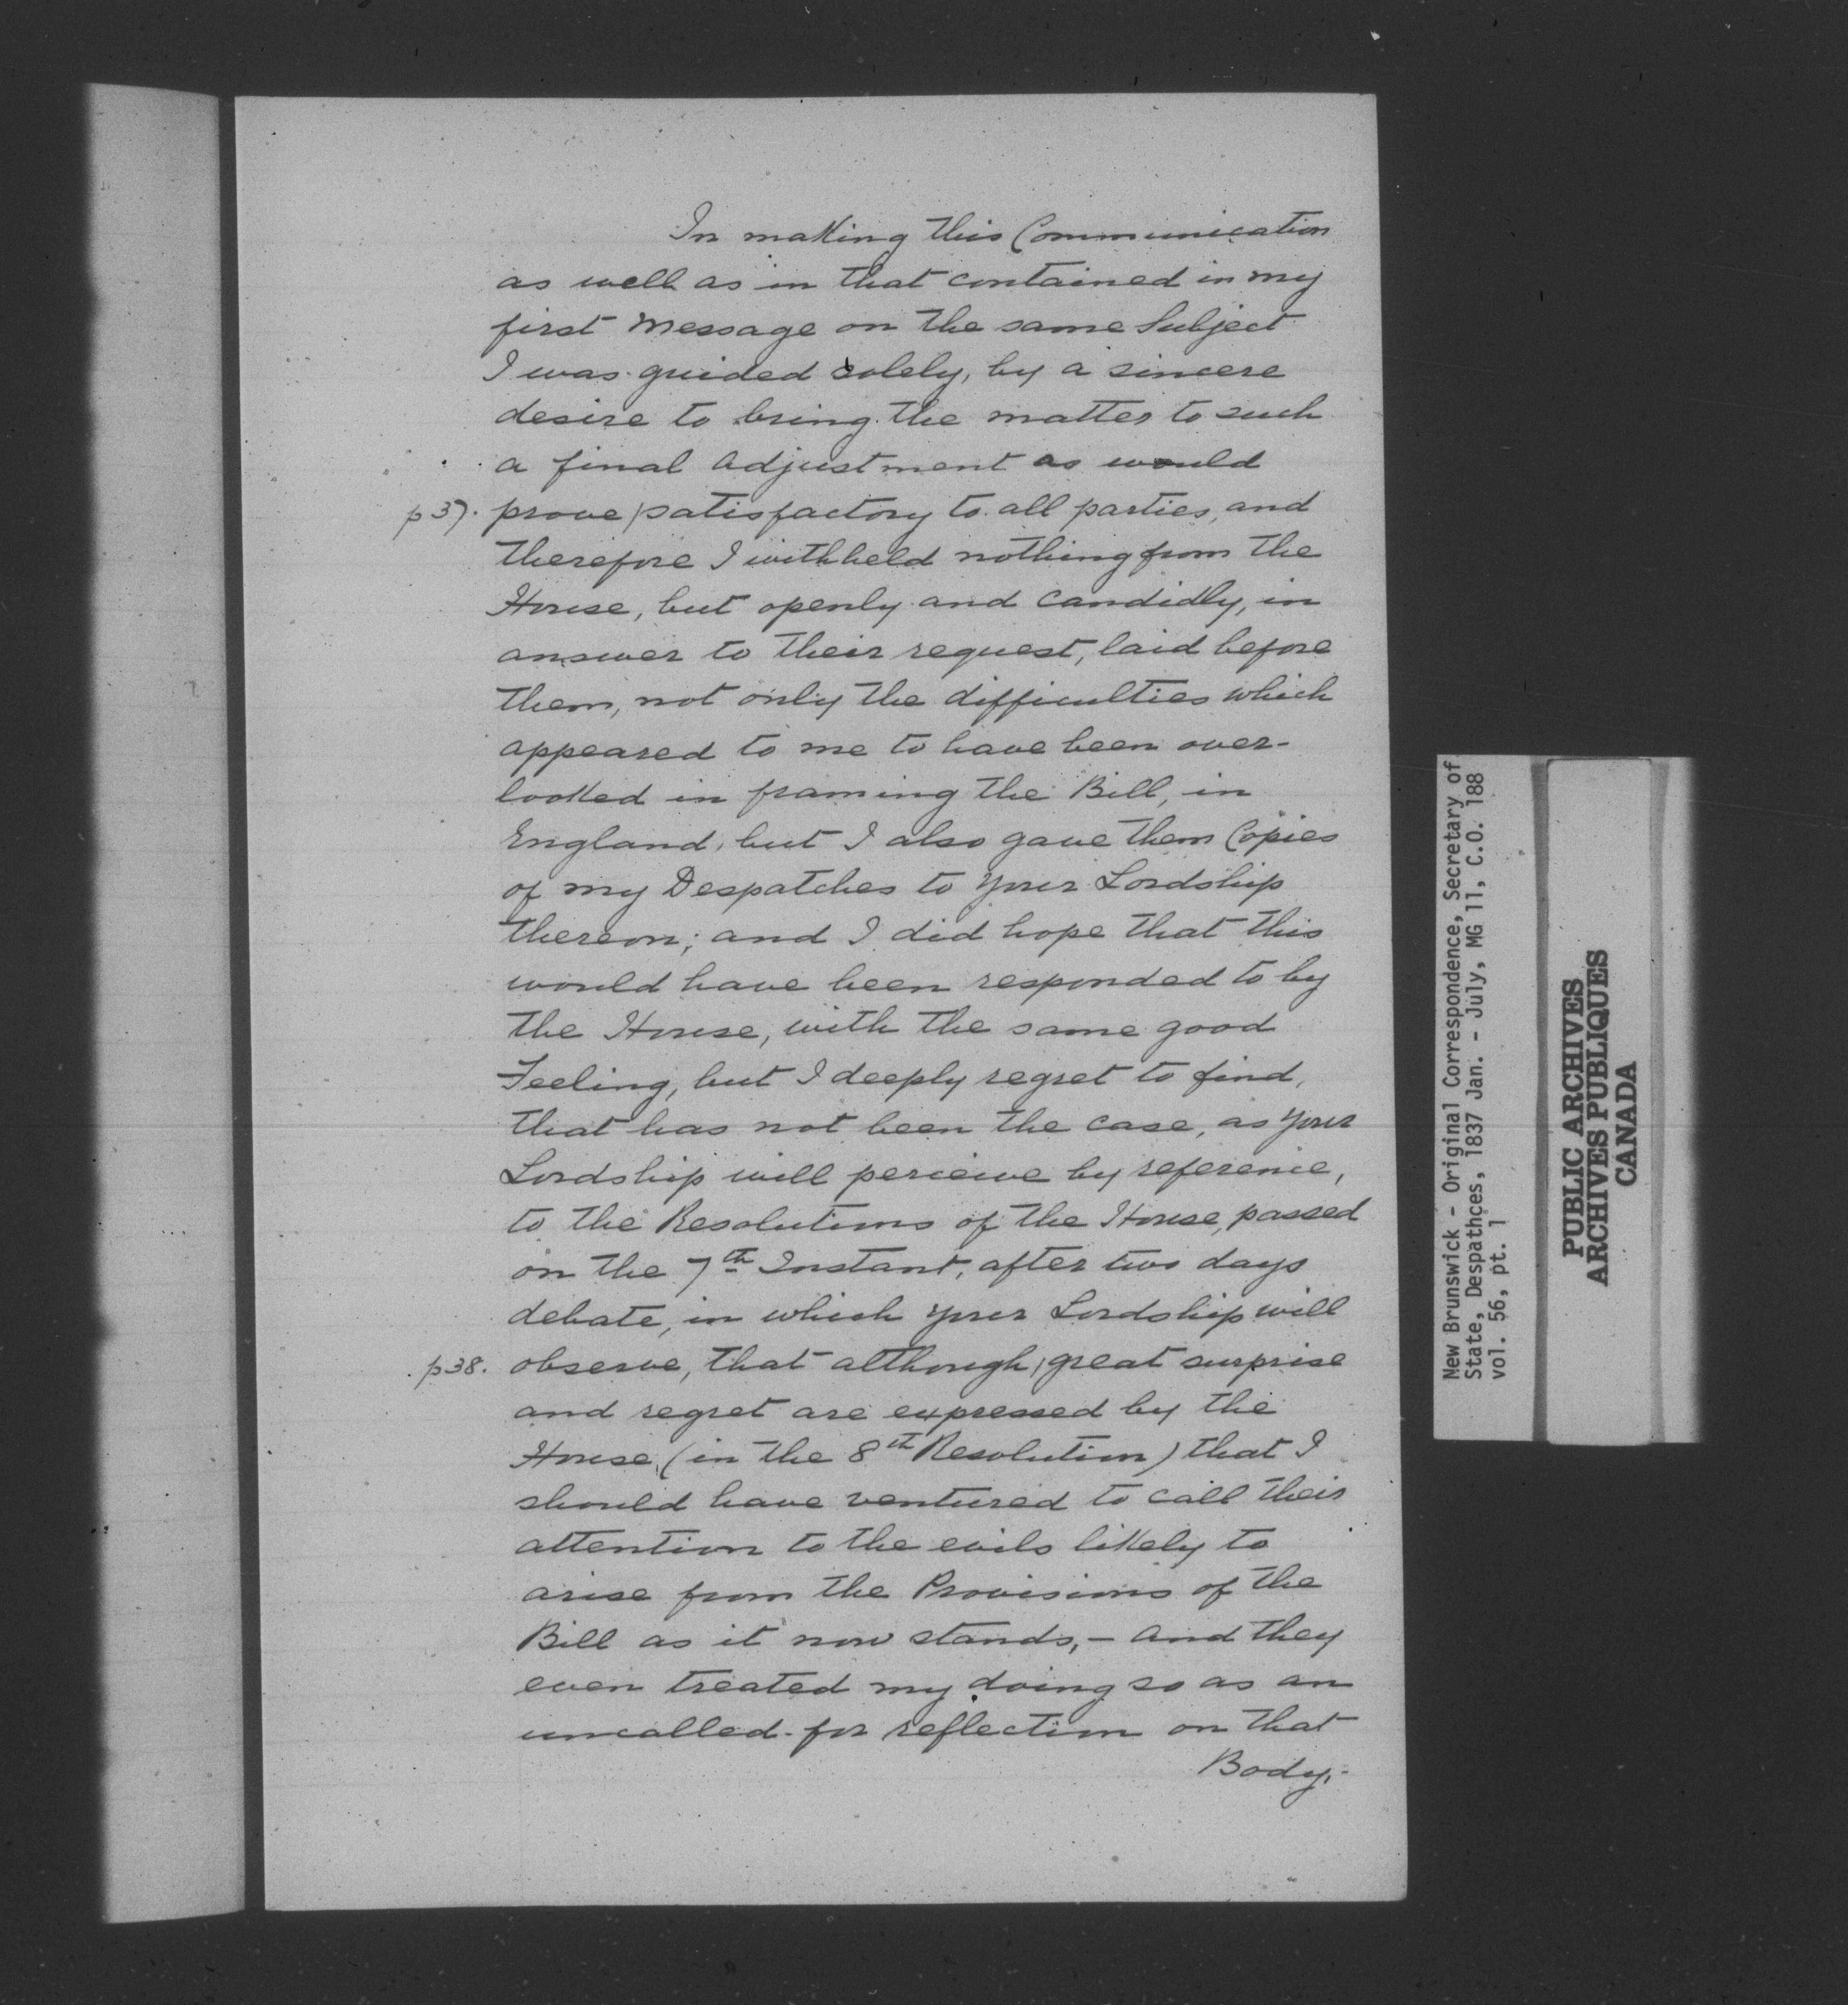 In making this Communication
as well as in that contained in my
first Message on the same Subject
I was guided solely, by a sincere
desire to bring the matter to such
a final adjustment as would
p37. prove/satisfactory to all parties, and
therefore I withheld nothing from the
House, but openly and candidly, in
answer to their request, laid before
them, not only the difficulties which
appeared to me to have been over-
looked in framing the Bill, in
England, but I also gave them Copies
of my Despatches to Your Lordship
thereon; and I did hope that this
would have been responded to by
the House, with the same good
Feeling, but I deeply regret to find,
that has not been the case, as Your
Lordship will percieve by reference,
to the Resolutions of the House, passed
on the 7th Instant, after two days
debate, in which Your Lordship will
p38. observe, that although/great surprise
and regret are expressed by the
House, (in the 8th Resolution) that I
should have ventured to call their
attention to the evils likely to
arise from the Provisions of the
Bill as it now stands, - and they
even treated my doing so as an
uncalled-for reflection on that
Body,-
New Brunswick - Original Correspondence, Secretary of
State, Despathces, 1837 Jan. - July, MG 11, C.O. 188
vol. 56, pt. 1
PUBLIC ARCHIVES
ARCHIVES PUBLIQUES
CANADA